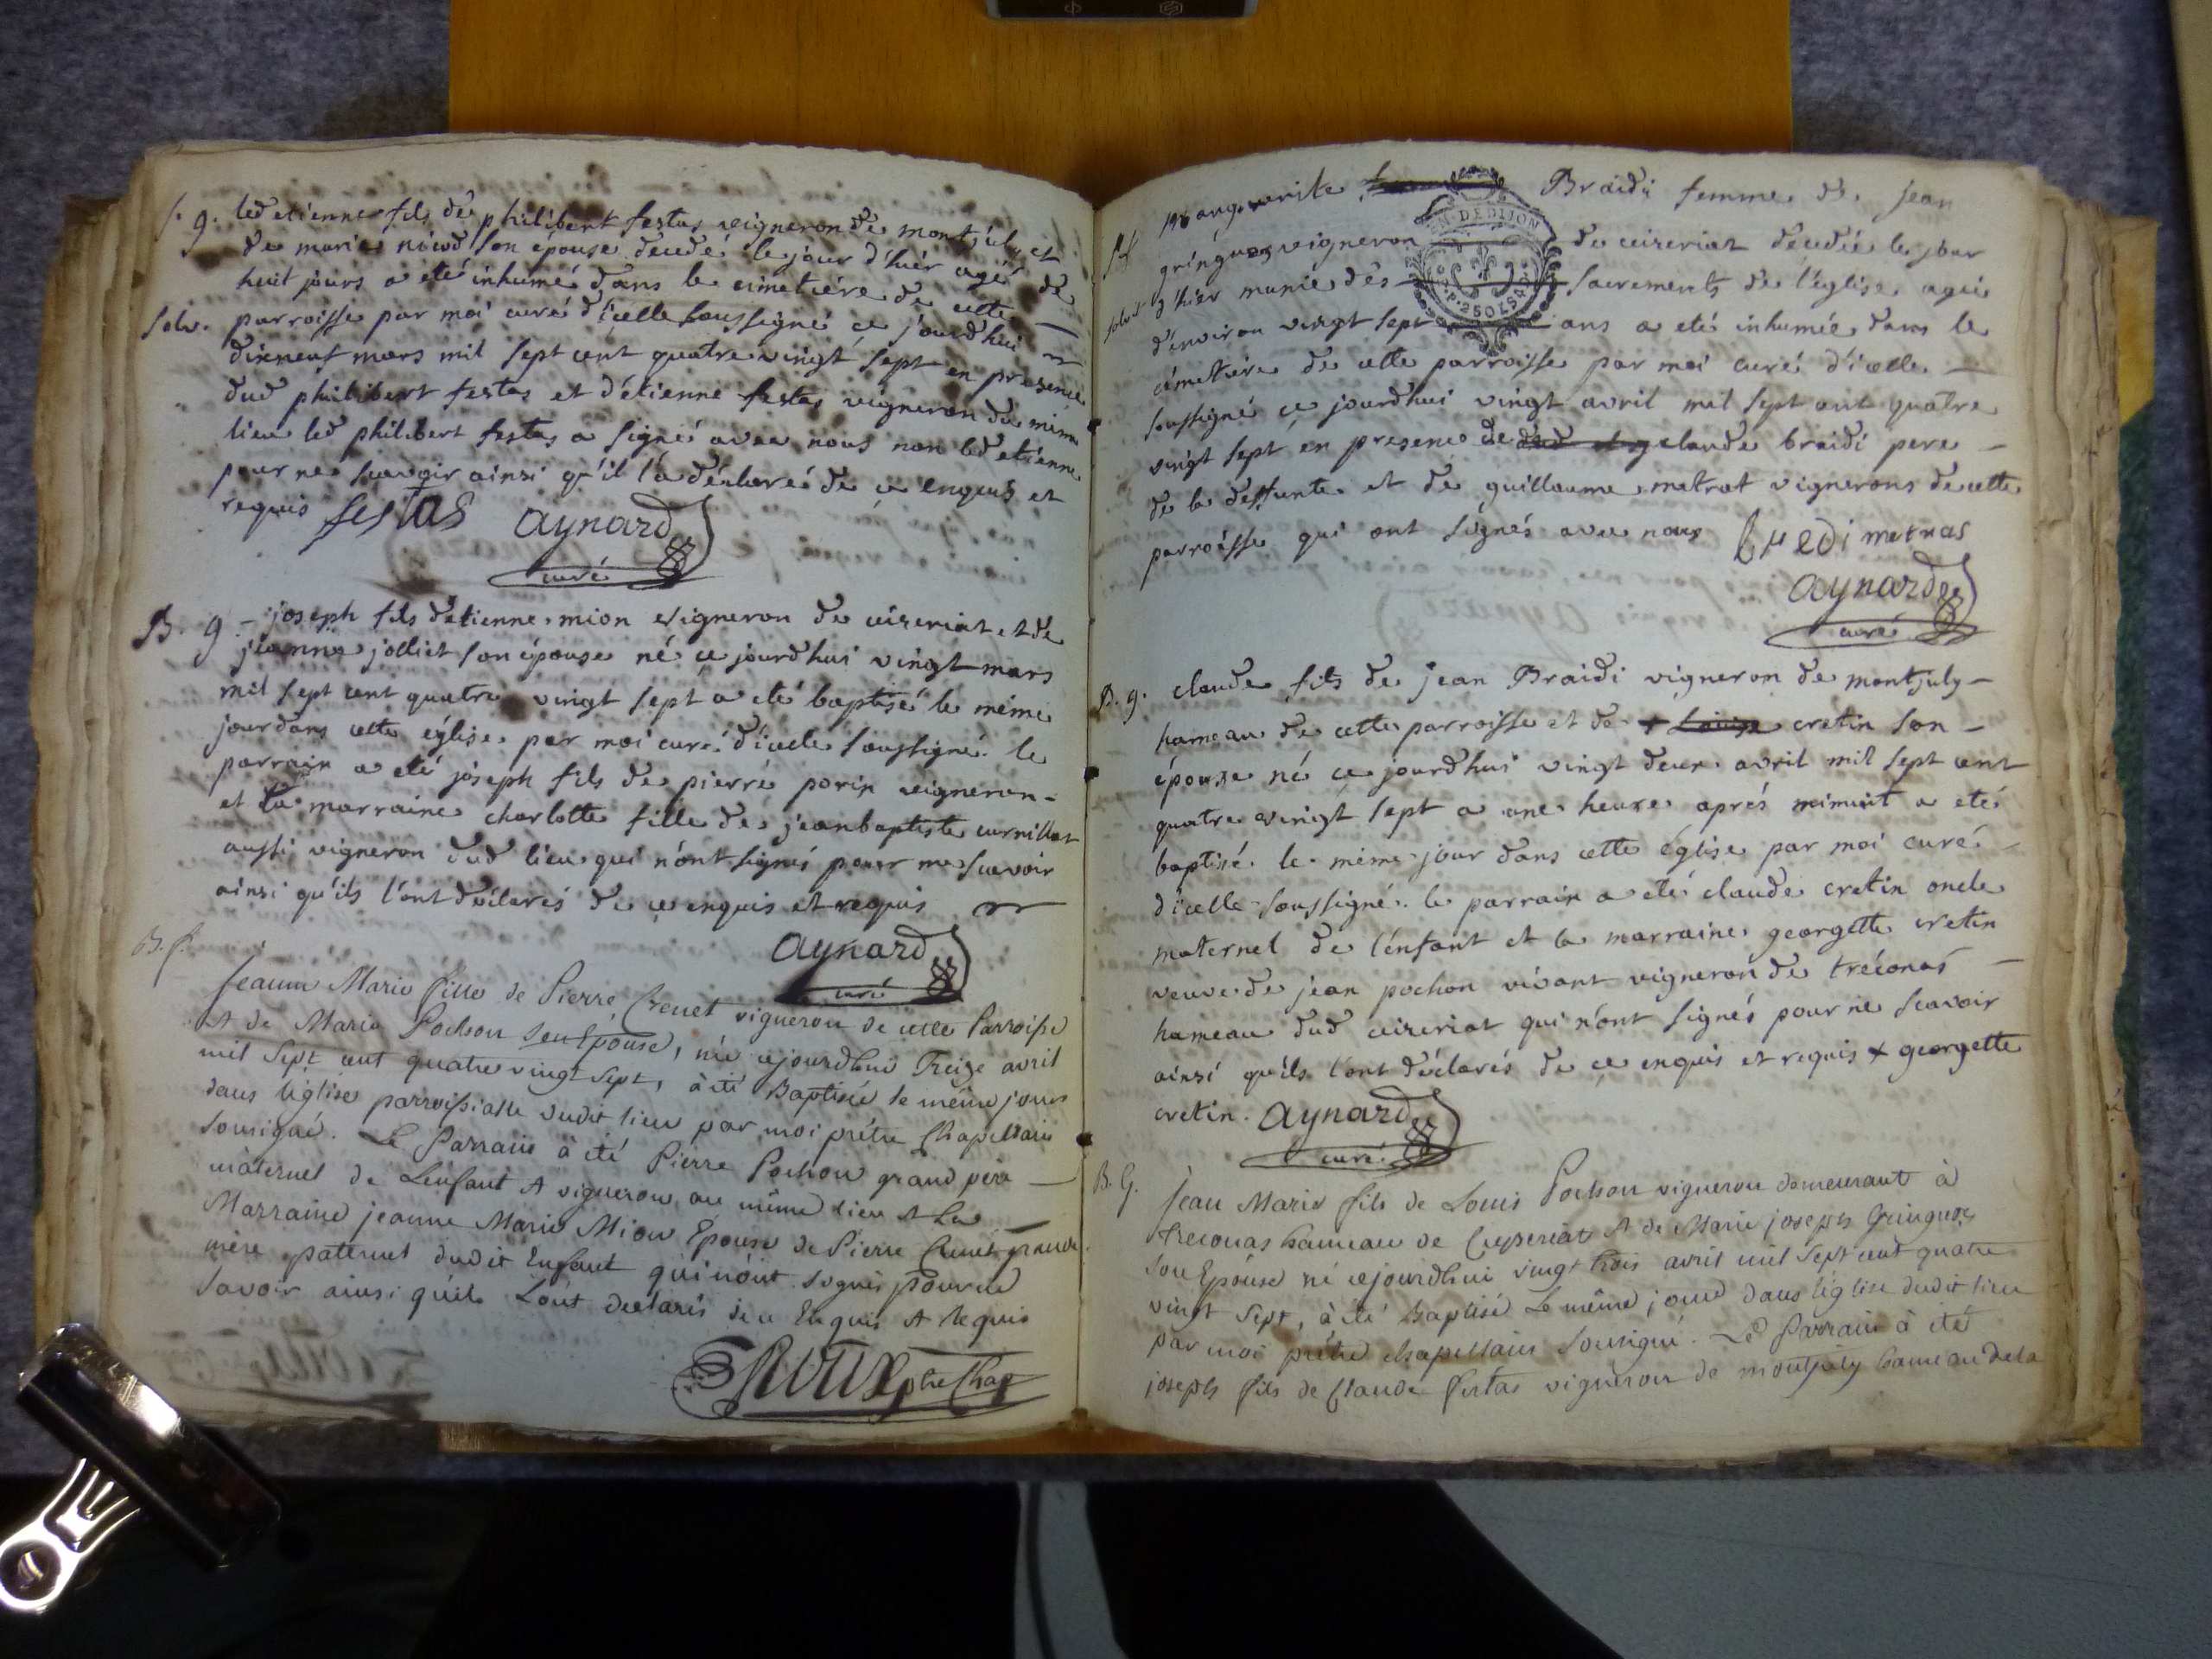 f. g. led etienne fils de philibert festas vigneron de montjuly et
de marie nicod son épouse decedé le jour d'hier agé de
huit jours a eté inhumé dans le cimetiére de cette
solv. parroisse par moi curé d'icelle soussigné ce jourd'hui
dixneuf mars mil sept cent quatre vingt sept en presence
dud philibert festas et d'étienne festas vigneron du même
lieu led philibert festas a signé avec nous non led etienne
pour ne scavoir ainsi qu'il l'a déclaré de ce enquis et
requis festas aynard
curé
B. g. joseph fils d'etienne mion vigneron de ceizeriat et de
jeanne jolliet son épouse né ce jourd'hui vingt mars
mil sept cent quatre vingt sept a eté baptisé le même
jour dans cette église par moi curé d'icelle soussigné. le
parrain a eté joseph fils de pierre porin vigneron
et la marraine charlotte fille de jean baptiste curnillat
aussi vigneron dud lieu qui n'ont signés pour ne scavoir
ainsi qu'ils l'ont déclarés de ce enquis et requis
aynard
curé
B. f.
Jeanne Marie fille de Pierre Crenet vigneron de cette Parroisse
et de Marie Pochon son Epouse, née cejourdhui Treize avril
mil sept cent quatre vingt sept, à été Baptisée le même jour
dans l'église parroissialle dudit lieu par moi prêtre Chapellain
sousigné. Le Parrain à été Pierre Pochon grand pére
maternel de L'enfant et vigneron au même lieu et La
Marraine jeanne Marie Mion Epouse de Pierre Crenet grande
mère paternel dudit Enfant qui n'ont signés pour ne
savoir ainsi qu'ils L'ont declarés de ce Enquis et Requis
ptre Chap
marguerite Braidi femme de jean
Sf gringuoz vigneron de ceizeriat decedée le jour
solvit d'hier munie des sacrements de l'église agée
d'environ vingt sept ans a eté inhumée dans le
cimetiére de cette parroisse par moi curé d'icelle
soussigné ce jourd'hui vingt avril mil sept cent quatre
vingt sept en presence de claude braidi pere
de la deffunte et de guillaume metrat vignerons de cette
parroisse qui ont signés avec nous bredi metras
aynard
curé
M. DE DIJON
B. g. claude fils de jean Braidi vigneron de montjuly
hameau de cette parroisse et de + Louise cretin son
épouse né ce jourd'hui vingt deux avril mil sept cent
quatre vingt sept a une heure aprés minuit a eté
baptisé le même jour dans cette église par moi curé
d'icelle soussigné. le parrain a eté claude cretin oncle
maternel de l'enfant et la marraine georgette cretin
veuve de jean pochon vivant vigneron de tréconas
hameau dud ceizeriat qui n'ont signés pour ne scavoir
ainsi qu'ils l'ont déclarés de ce enquis et requis + georgette
cretin. aynard
curé
B. G. Jean Marie fils de Louis Pochon vigneron demeurant à
treconas hameau de Ceyzeriat et de Marie joseph Gringuoz
son Epouse né cejourdhui vingt trois avril mil sept cent quatre
vingt sept, à été Baptisé Le même jour dans l'église dudit lieu
par moi prêtre chapellain sousigné. Le Parrain à été
joseph fils de Claude festas vigneron de montjuly hameau de la